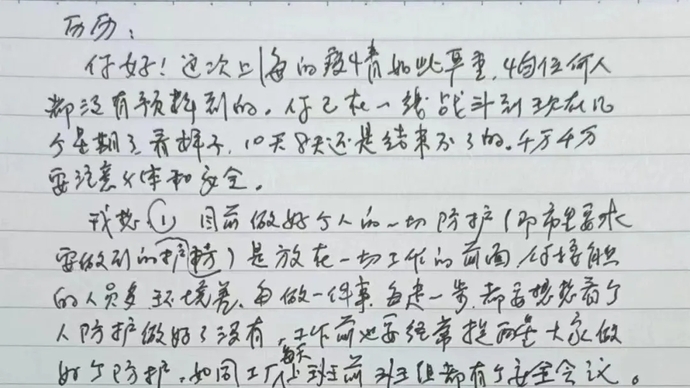 历历:
你好!这次上海的疫情如此严重,恐怕任何人
都没有预料到的。你已在一线战斗到现在几
个星期了,看样子,10天8天还是结束不了的。千万千万
要注意身体和安全。
我想,① 目前做好个人的一切防护(即市里要求
要做到的防护)是放在一切工作的前面,你接触
的人员多,环境差,每做一件事,每走一步,都要想想看个
人防护做好了没有,工作前也要经常提醒大家做
好个防护,如同工厂每天上班前班组都有个安全会议。